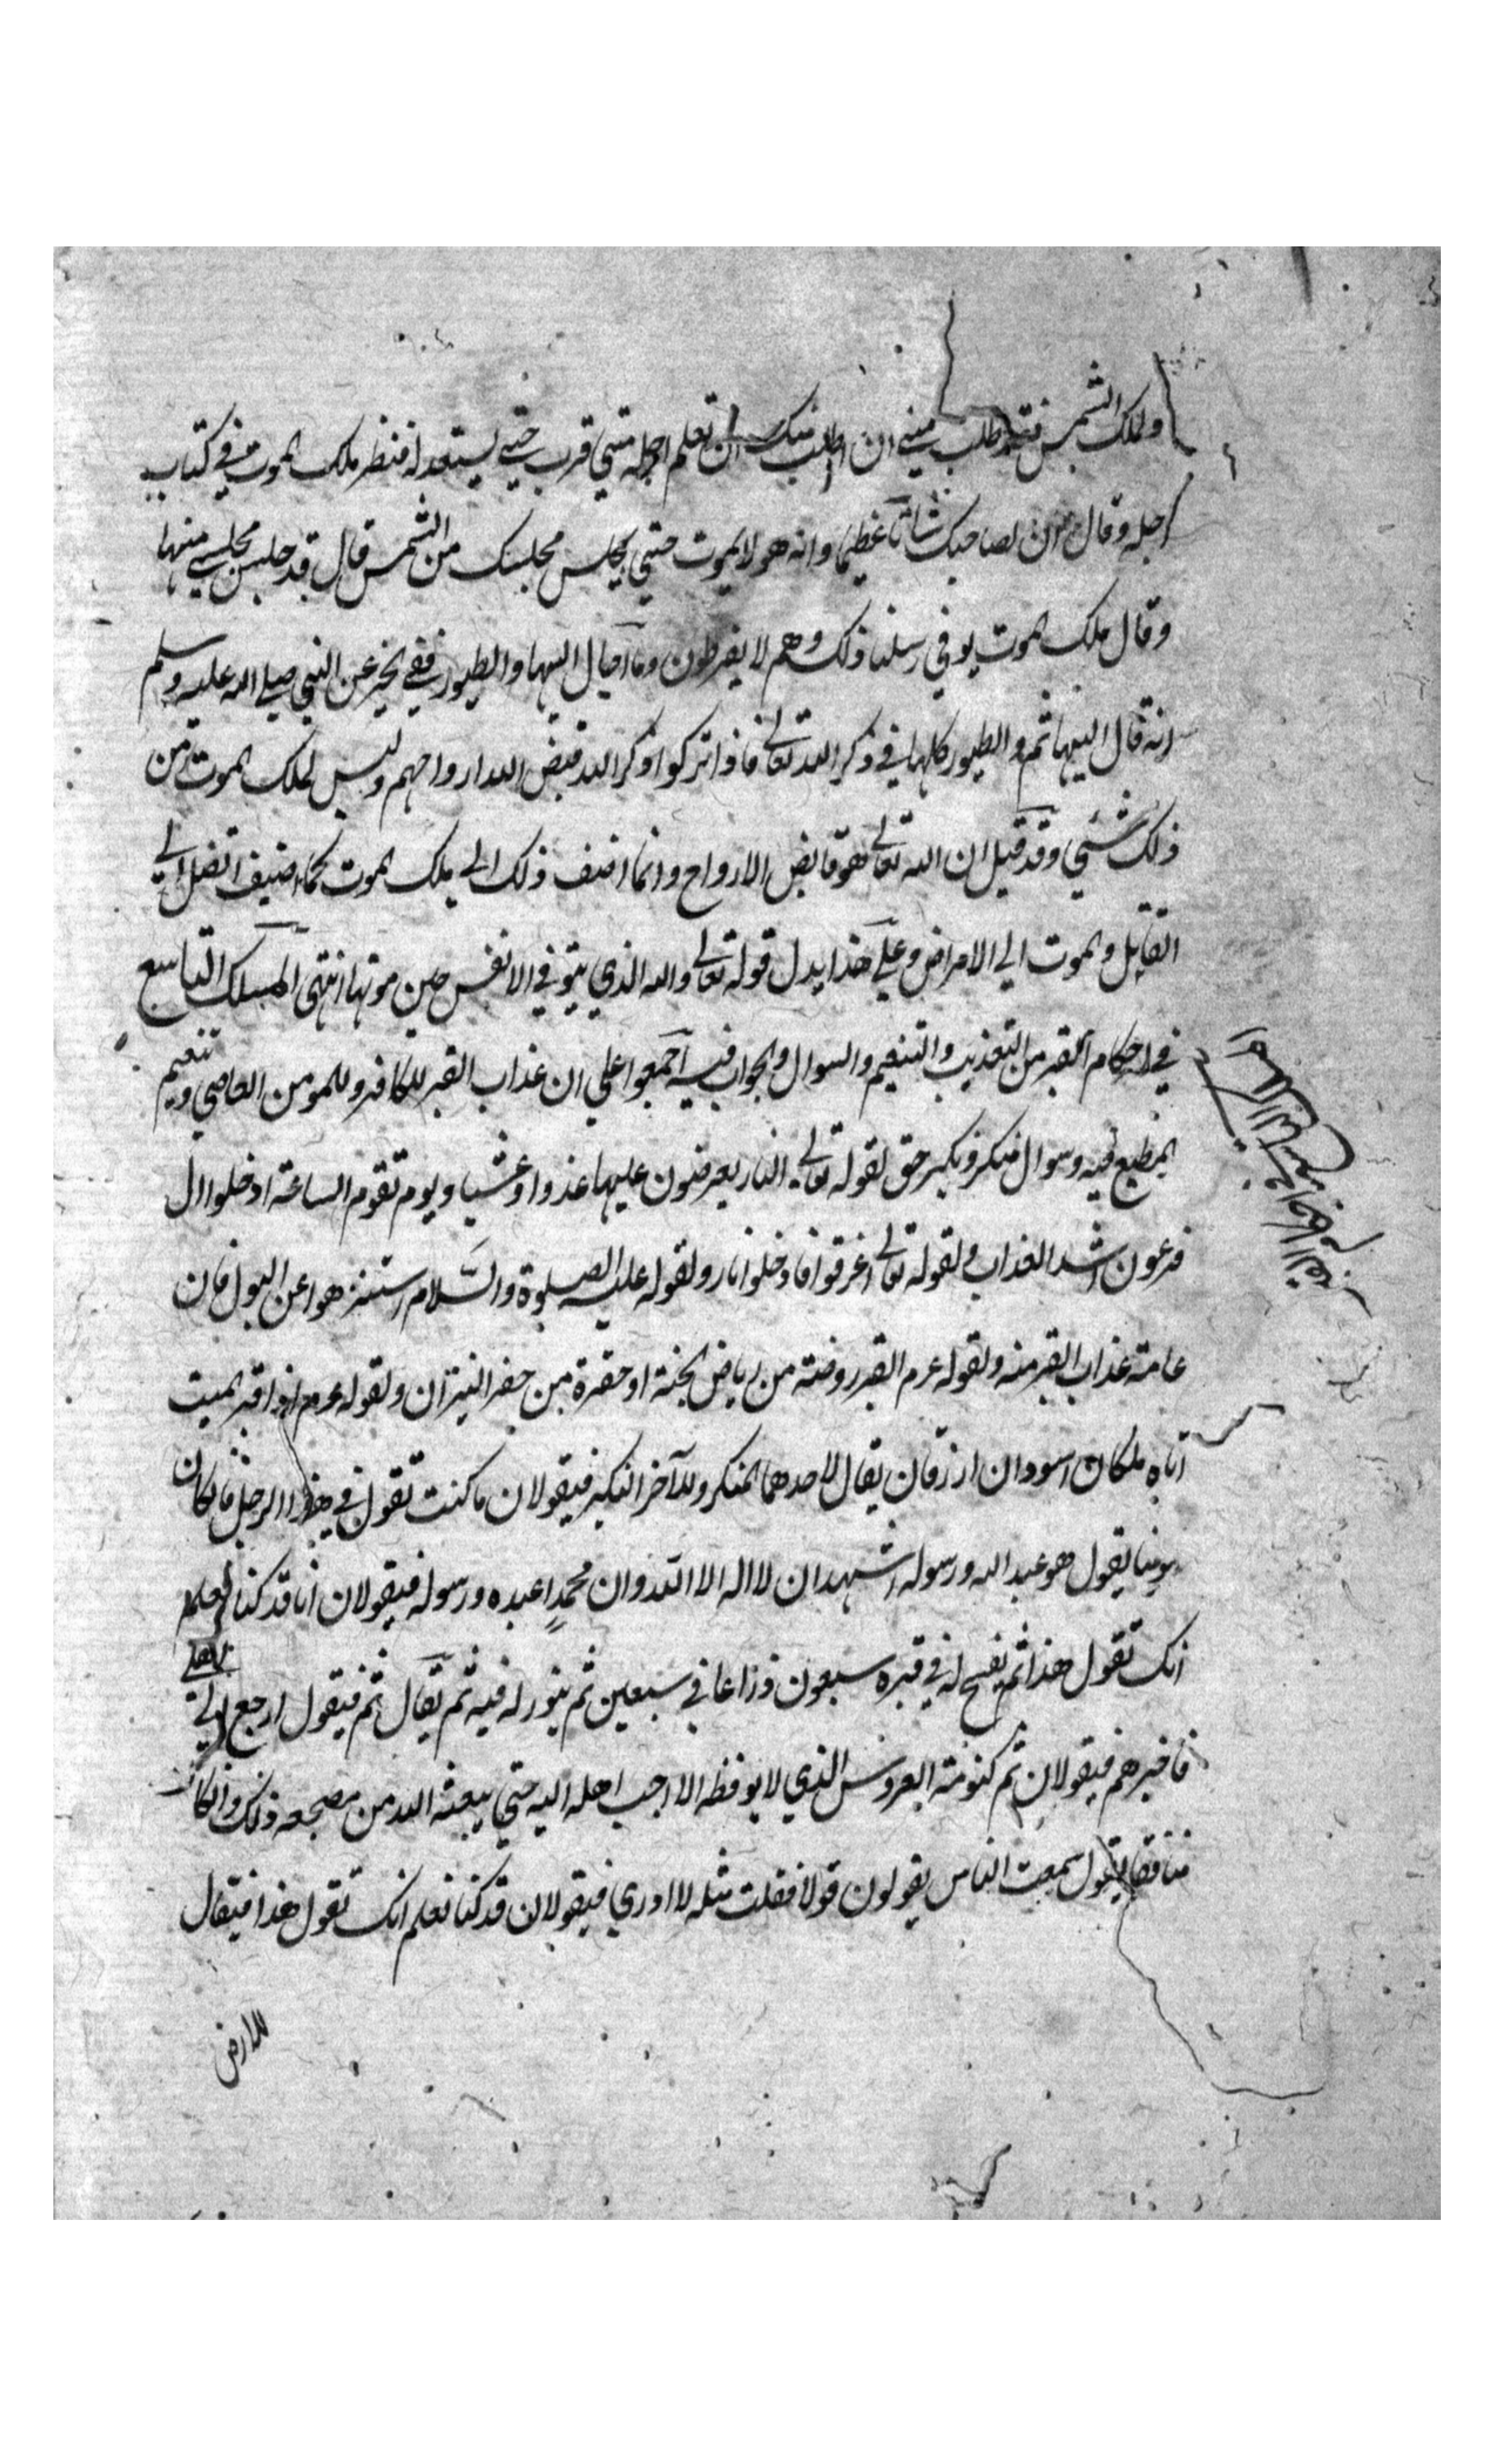 ولملك الشمس فتد طلب مني ان اطلب منك ان تعلم اجله متي قرب حتي يستعد له فنظر ملك الموت في كتاب
اجله وقال ان لصاحبك شانا عظيما وانه هو لا يموت حتي يجلس مجلسك من الشمس قال قد جلس مجلسي منها
وقال ملك الموت يوفي رسلنا ذلك وهم لا يفرطون وما آجال البها والطيور ففي الخبر عن النبي صلي الله عليه وسلم
انه قال البهائم والطيور كلها في ذكر الله تعالي فاذا تركوا ذكر الله قبض الله ارواحهم وليس لملك الموت من
ذلك شئي وقد قيل ان الله تعالي هو قابض الارواح وانما اضف ذلك الي ملك الموت كما اضيف القتل الي
القايل والموت الي الامراض وعلي هذا يدل قوله تعالي والله الذي يتوفي الانفس حين موتها انتهي المسلك التاسع
في احكام القبر من التعذيب والتنعيم والسوال والجواب فيه اجمعوا علي ان عذاب القبر للكافر وللمومن العاصي وتنعيم
المطيع فيه وسوال منكر ونكير حق لقوله تعالي النار يعرضون عليها غدوا وعشيا ويوم تقوم الساعة ادخلوا ال
فرعون اشد العذاب ولقوله تعالي اغرقوا فادخلوا نار ولقوله عليه الصلوة والسلام استنزهوا عن البول فان
عامة عذاب القبر منه ولقوله عرم القبر روضة من رياض الجنة او حفرة من حفر النيران ولقوله عرم اذا قبر الميت
اتاه ملكان اسودان ازرقان يقال لاحدهما المنكر وللآخر النكير فيقولان ما كنت تقول في هذا الرجل فان كان
مومنا يقول هو عبد الله ورسوله اشهد ان لا اله الا الله وان محمدا عبده ورسوله فيقولان انا قد كنا نعلم
انك تقول هذا ثم يفسح له في قبره سبعون ذراعا في سبعين ثم ينور له فيه ثم يقال ثم فيقول ارجع الي اهلي
فاخبرهم فيقولان ثم كنومة العروس الذي لا يوقظه الا احب اهله اليه حتي يبعثه الله من مضجعه ذلك وان كان
منافقا يقول سمعت الناس يقولون قولا فقلت مثله لا ادري فيقولان قد كنا نعلم انك تقول هذا فيقال
للارض